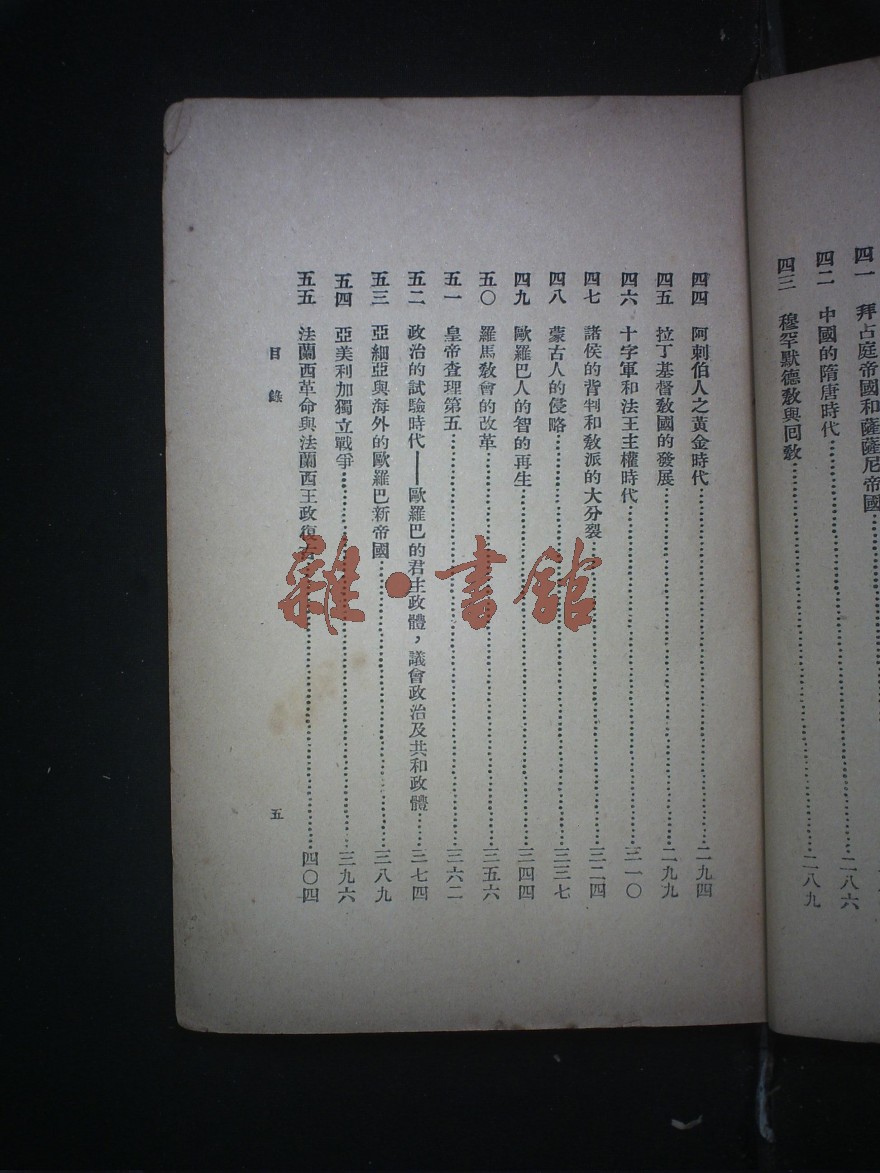 四一 拜占庭帝國和薩薩尼帝國
四二 中國的隋唐時代……二八六
四三 穆罕默德敎與回敎……二八九
四四 阿剌伯人之黃金時代……二九四
四五 拉丁基督敎國的發展……二九九
四六 十字軍和法王主權時代……三一〇
四七 諸侯的背判和敎派的大分裂……三二四
四八 蒙古人的侵略……三三七
四九 歐羅巴人的智的再生……三四四
五〇 羅馬敎會的改革……三五六
五一 皇帝查理第五……三六二
五二 政治的試驗時代——歐羅巴的君主政體，議會政治及共和政體……三七四
五三 亞細亞與海外的歐羅巴新帝國……三八九
五四 亞美利加獨立戰爭……三九六
五五 法蘭西革命與法蘭西王政復古……四〇四
目錄
五
雜·書館